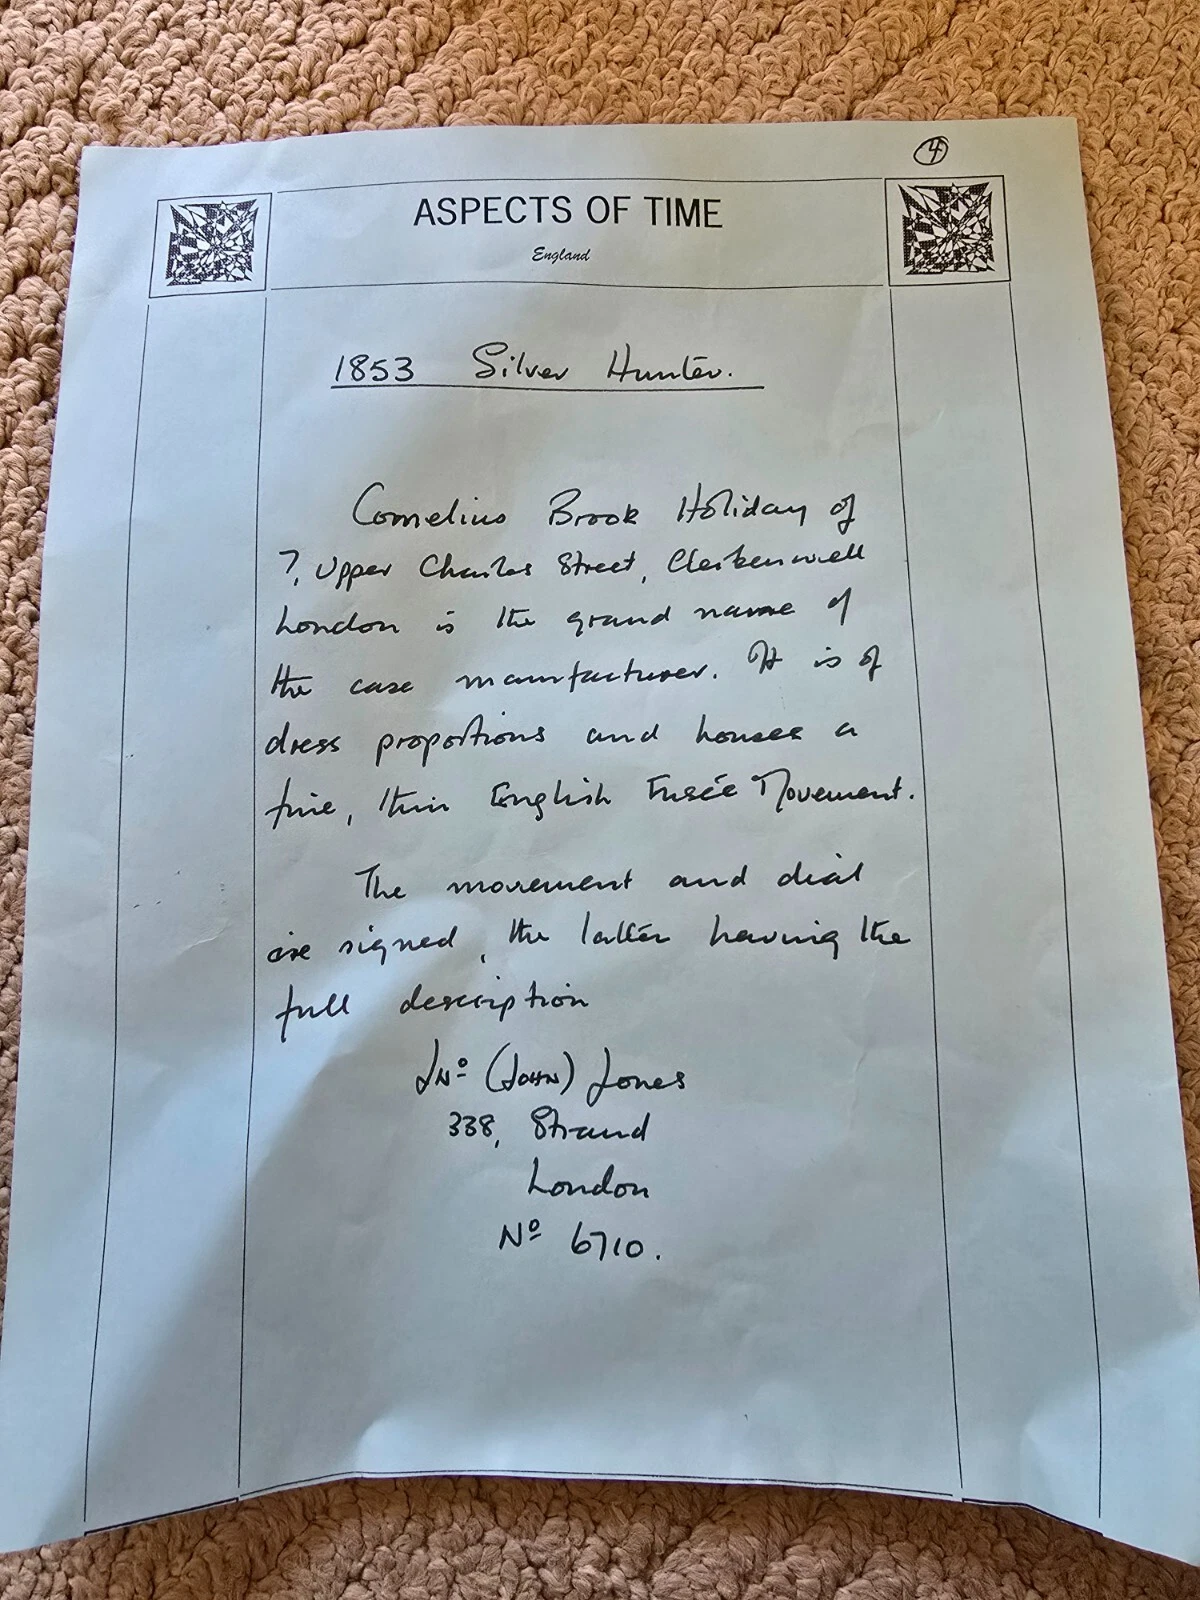 4
ASPECTS OF TIME
England
1853 Silver Hunter.
Cornelius Brook Holiday of
7, Upper Charles Street, Clerkenwell
London is the grand name of
the case manufacturer. It is of
dress proportions and houses a
fine, thin English Fusée Movement.
The movement and dial
are signed, the latter having the
full description
Jnº (JOHN) Jones
338, Strand
London
Nº 6710.